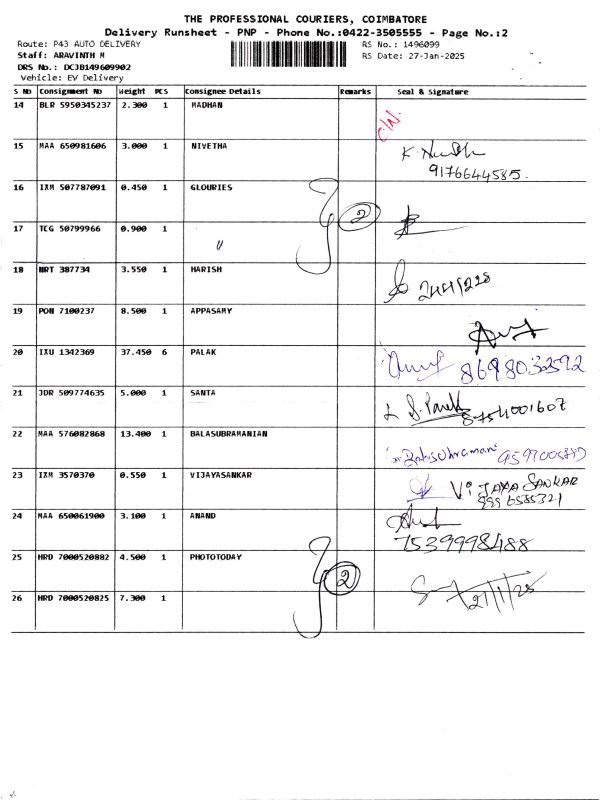 THE PROFESSIONAL COURIERS, COIMBATORE
Delivery Runsheet - PNP - Phone No.:0422-3505555 - Page No.:2
Route: P43 AUTO DELIVERY RS No.: 1496099
Staff: ARAVINTH M RS Date: 27-Jan-2025
DRS No.: DCJB149609902
Vehicle: EV Delivery
S No Consignment No Weight PCS Consignee Details Remarks Seal & Signature
14 BLR 5950345237 2.300 1 MADHAN
15 MAA 650981606 3.000 1 NIVETHA
9176644585.
16 IXM 507787091 0.450 1 GLOURIES
2
17 TCG 50799966 0.900 1
18 NRT 387734 3.550 1 HARISH
19 PON 7100237 8.500 1 APPASAMY
20 IXU 1342369 37.450 6 PALAK
8698032592
21 JDR 509774635 5.000 1 SANTA
8754001607
22 MAA 576082868 13.400 1 BALASUBRAMANIAN
23 IXM 3570370 0.550 1 VIJAYASANKAR
VIJAYA SANKAR
24 MAA 650061900 3.100 1 ANAND
7539998488
25 HRD 7000520882 4.500 1 PHOTOTODAY
2
26 HRD 7000520825 7.300 1